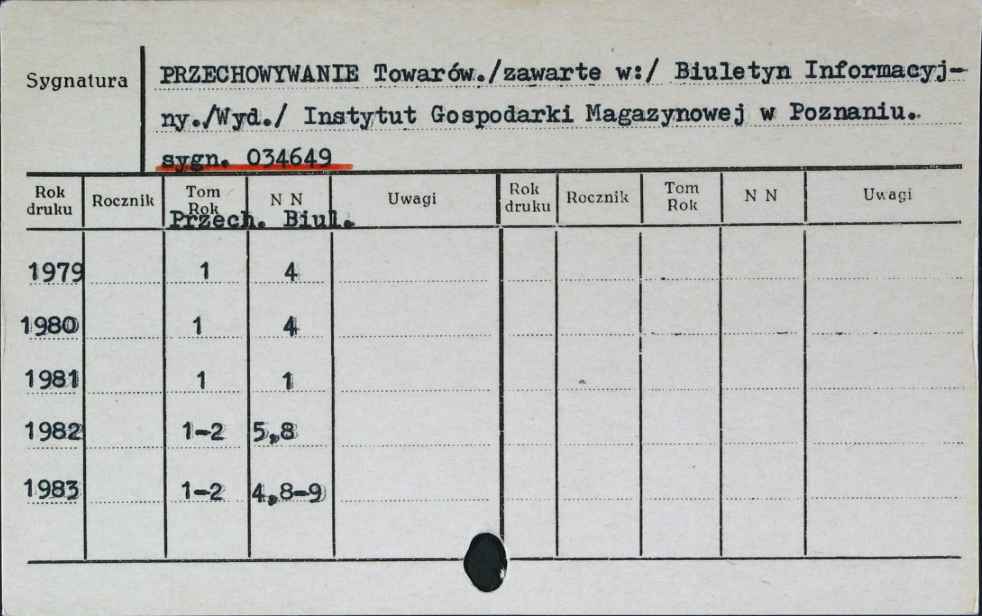 Sygnatura
PRZECHOWYWANIE Towarów./zawarte w:/ Biuletyn Informacyj-
ny./Wyd./ Instytut Gospodarki Magazynowej w Poznaniu.
sygn. 034649
Rok druku Rocznik Tom Rok N N Uwagi Rok druku Rocznik Tom Rok N N Uwagi
Przech. Biul.
1979 1 4
1980 1 4
1981 1 1
1982 1-2 5,8
1983 1-2 4,8-9